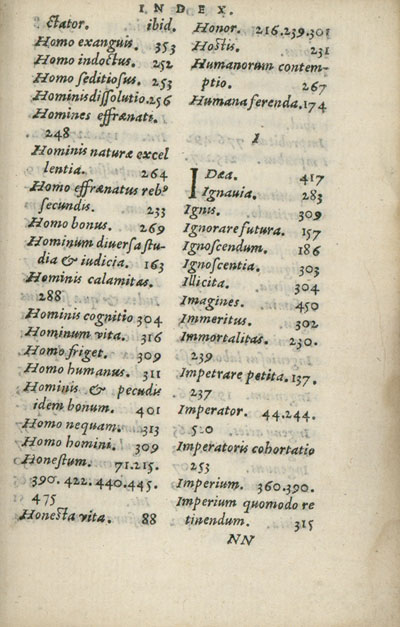 INDEX.
ctator. ibid.
Homo exanguis. 353
Homo indoctus. 252
Homo seditiosus. 253
Hominis dissolutio. 256
Homines effrænati.
248
Hominis naturæ excel
lentia. 264
Homo effrænatus rebꝰ
secundis. 233
Homo bonus. 269
Hominum diuersa stu-
dia & iudicia. 163
Hominis calamitas.
288
Hominis cognitio 304
Hominum vita. 316
Homo friget. 309
Homo humanus. 311
Hominis & pecudis
idem bonum. 401
Homo nequam. 313
Homo homini. 309
Honestum. 71.215.
390. 422. 440.445.
475
Honesta vita. 88
Honor. 216.239.301
Hostis. 231
Humanorum contem-
ptio. 267
Humana ferenda. 174
I
IDæa. 417
Ignauia. 283
Ignis. 309
Ignorare futura. 157
Ignoscendum. 186
Ignoscentia. 303
Illicita. 304
Imagines. 450
Immeritus. 302
Immortalitas. 230.
239
Impetrare petita. 137.
237
Imperator. 44.244.
520
Imperatoris cohortatio
253
Imperium. 360.390.
Imperium quomodo re
tinendum. 315
NN